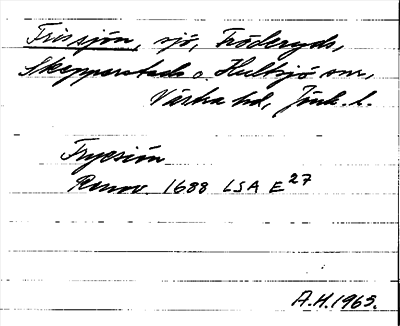 Frissjön, sjö, Fröderyds,
Skepperstads o. Hultsjö snr,
Västra hd, Jönk. l.
Fryesiön
Renov. 1688 LSA E27
A.H. 1965.